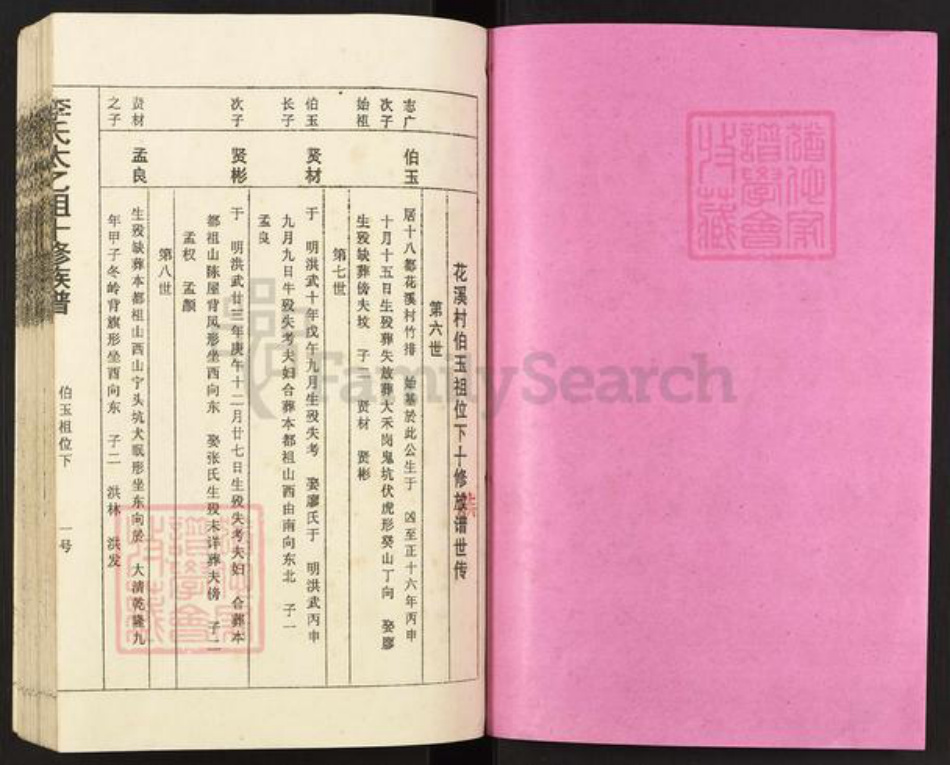 花溪村伯玉祖位下十修族谱世传
第六世
志广
次子
始祖
伯玉
居十八都花溪村竹排 始基於此公生于 凶至正十六年丙申
十月十五日生殁葬失放葬大禾岗鬼坑伏虎形癸山丁向 娶廖
生殁缺葬傍夫坟 子二 贤材 贤彬
第七世
伯玉
长子
贤材
于 明洪武十年戊午九月生殁失考 娶廖氏于 明洪武丙申
九月九日生殁失考夫妇合葬本都祖山西由南向东北 子一
孟良
次子
贤彬
于 明洪武廿三年庚午十二月廿七日生殁失考夫妇 合葬本
都祖山陈屋背凤形坐西向东 娶张氏生殁未详葬夫傍 子二
孟权 孟颜
第八世
贤材
之子
孟良
生殁缺葬本都祖山西山宁头坑犬眠形坐东向於 大清乾隆九
年甲子冬岭背旗形坐西向东 子二 洪林 洪发
李氏太乙祖十修族谱
伯玉祖位下
一号
FamilySearch